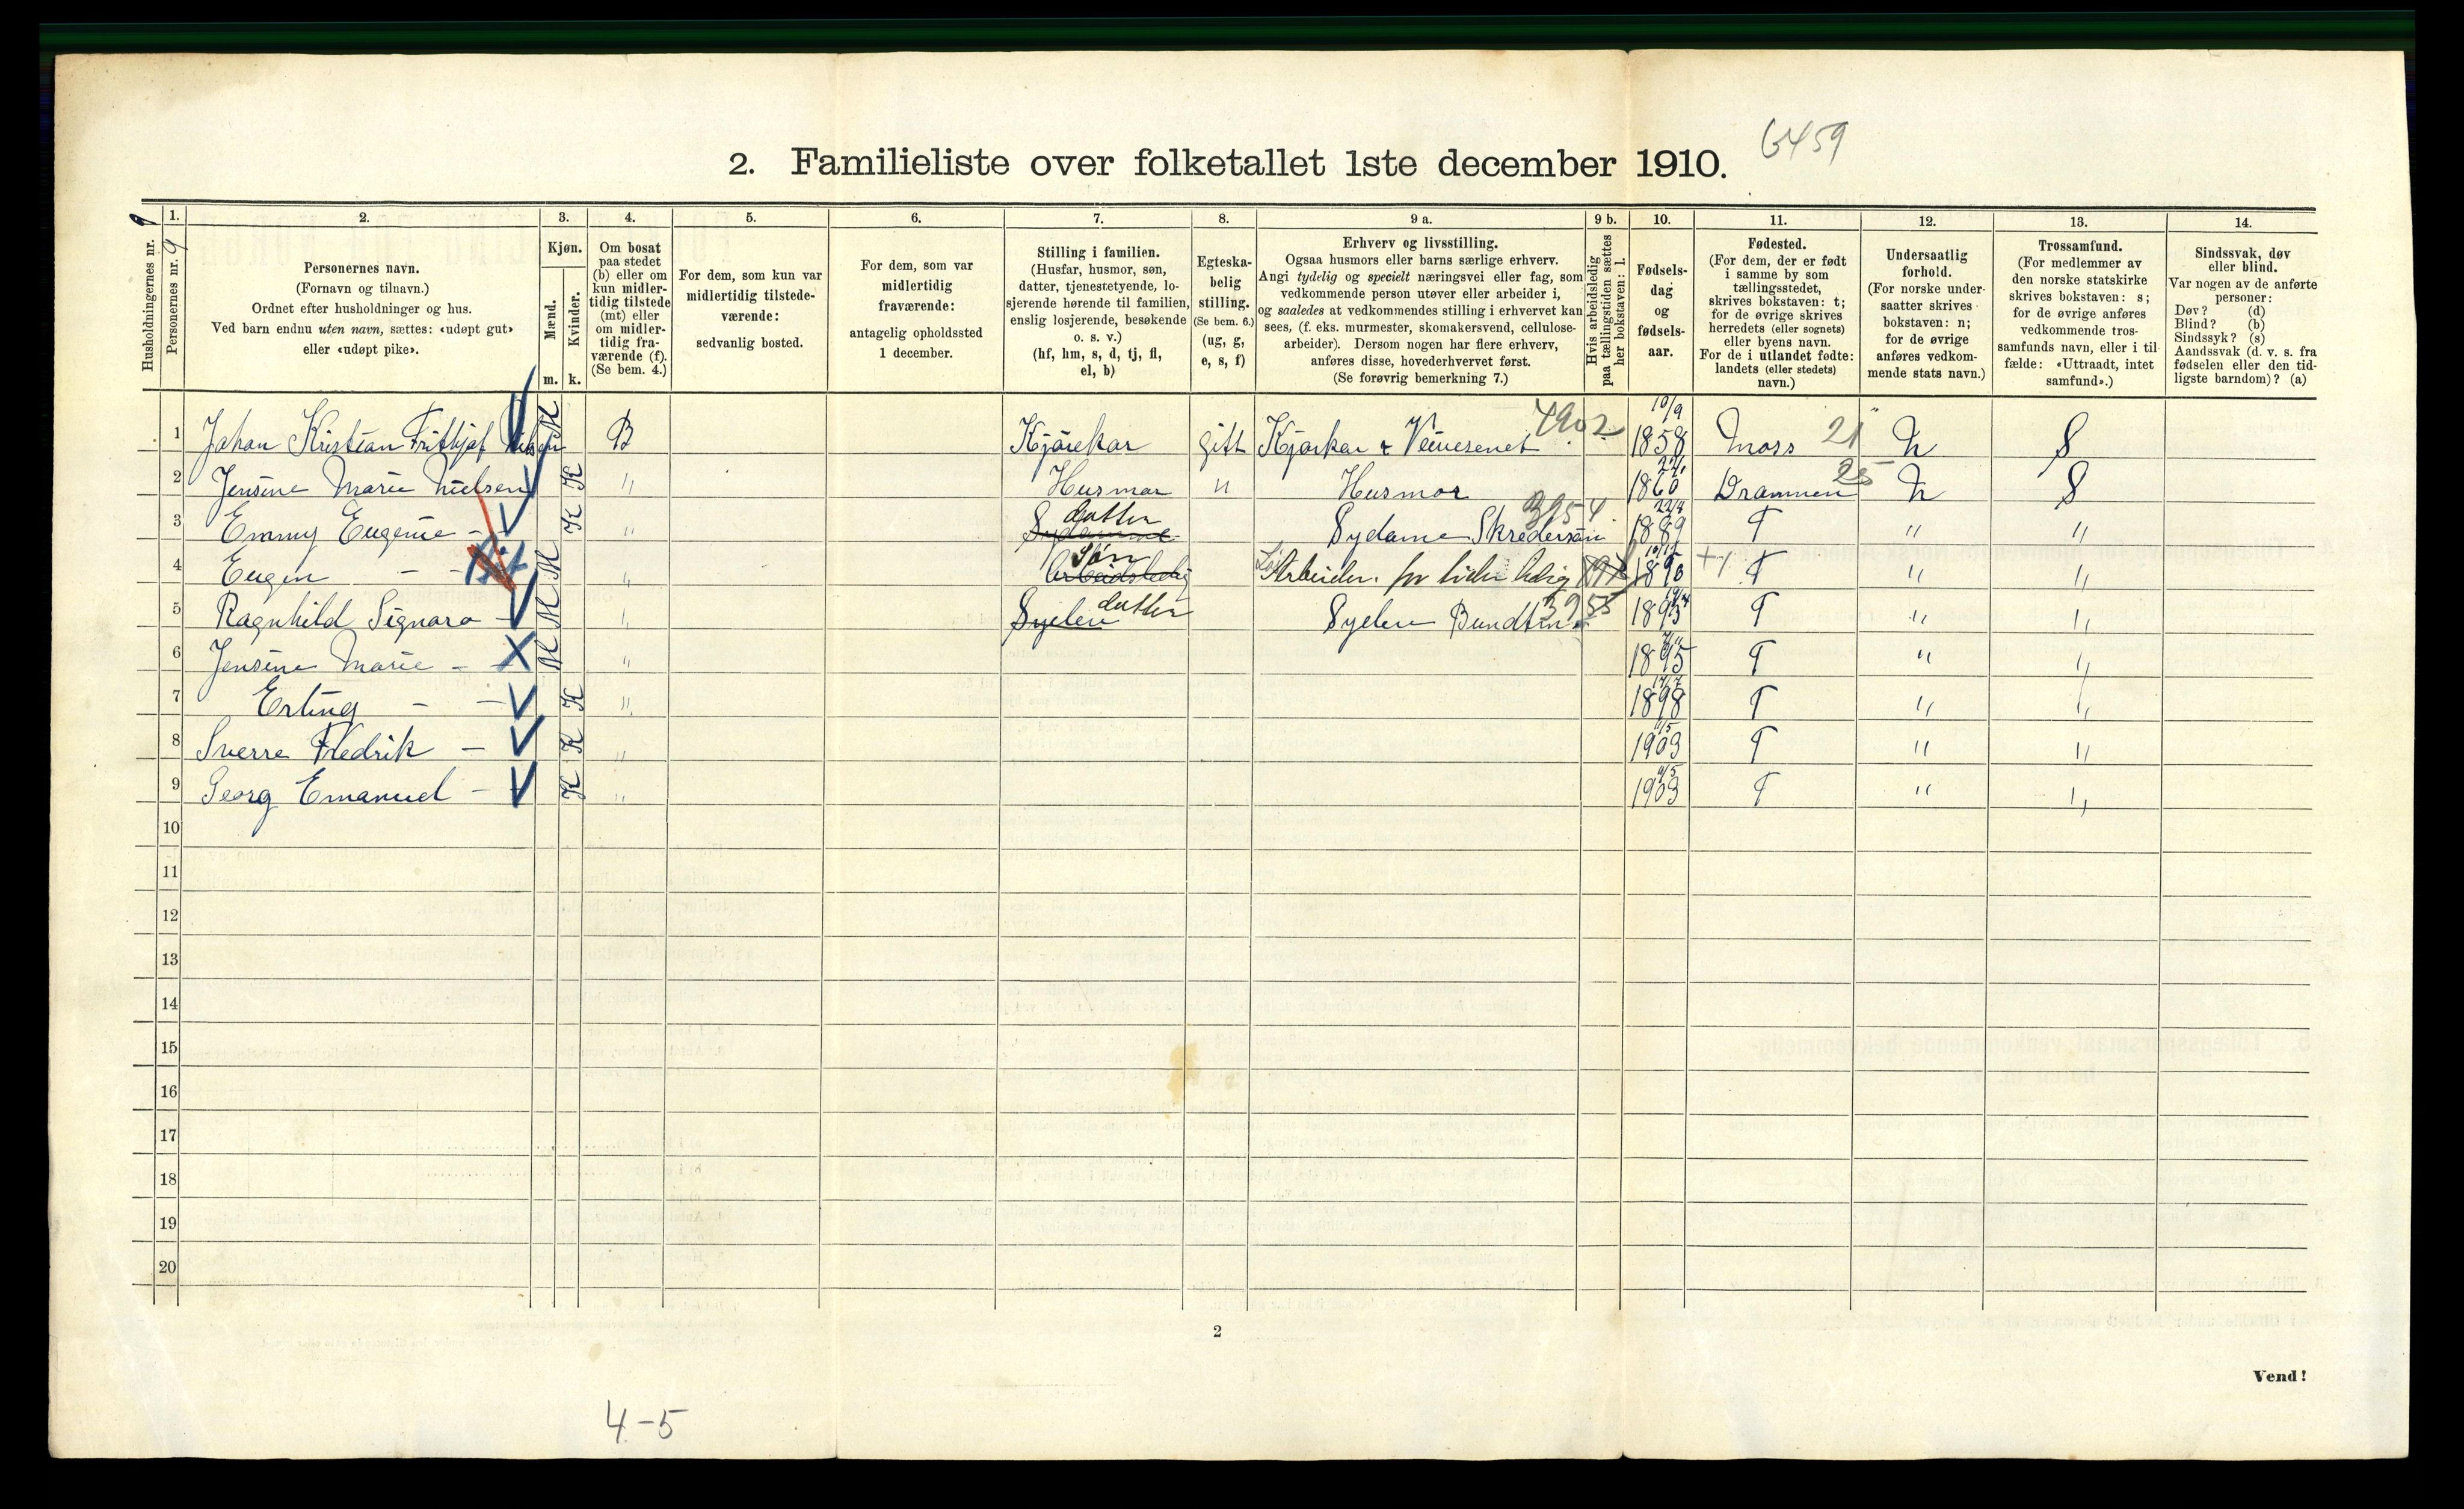 6459
2. Familieliste over folketallet 1ste december 1910.
Husholdningernes nr.
1. Personernes nr. 9
2. Personernes navn.
(Fornavn og tilnavn.)
Ordnet efter husholdninger og hus.
Ved barn endnu uten navn, sættes: «udøpt gut»
eller «udøpt pike».
3. Kjøn.
Mænd. m.
Kvinder. k.
4. Om bosat
paa stedet
(b) eller om
kun midler-
tidig tilstede
(mt) eller
om midler-
tidig fra-
værende (f).
(Se bem. 4.)
5. For dem, som kun var
midlertidig tilstede-
værende:
sedvanlig bosted.
6. For dem, som var
midlertidig
fraværende:
antagelig opholdssted
1 december.
7. Stilling i familien.
(Husfar, husmor, søn,
datter, tjenestetyende, lo-
sjerende hørende til familien,
enslig losjerende, besøkende
o. s. v.)
(hf, hm, s, d, tj, fl,
el, b)
8. Egteska-
belig
stilling.
(Se bem. 6.)
(ug, g,
e, s, f)
9 a. Erhverv og livsstilling.
Ogsaa husmors eller barns særlige erhverv.
Angi tydelig og specielt næringsvei eller fag, som
vedkommende person utøver eller arbeider i,
og saaledes at vedkommendes stilling i erhvervet kan
sees, (f. eks. murmester, skomakersvend, cellulose-
arbeider). Dersom nogen har flere erhverv,
anføres disse, hovederhvervet først.
(Se forøvrig bemerkning 7.)
9 b. Hvis arbeidsledig
paa tællingstiden sættes
her bokstaven: l.
10. Fødsels-
dag
og
fødsels-
aar.
11. Fødested.
(For dem, der er født
i samme by som
tællingsstedet,
skrives bokstaven: t;
for de øvrige skrives
herredets (eller sognets)
eller byens navn.
For de i utlandet fødte:
landets (eller stedets)
navn.)
12. Undersaatlig
forhold.
(For norske under-
saatter skrives
bokstaven: n;
for de øvrige
anføres vedkom-
mende stats navn.)
13. Trossamfund.
(For medlemmer av
den norske statskirke
skrives bokstaven: s;
for de øvrige anføres
vedkommende tros-
samfunds navn, eller i til-
fælde: «Uttraadt, intet
samfund».)
14. Sindssvak, døv
eller blind.
Var nogen av de anførte
personer:
Døv? (d)
Blind? (b)
Sindssyk? (s)
Aandssvak (d. v. s. fra
fødselen eller den tid-
ligste barndom)? (a)
1 Johan Kristian Frithjof M B Kjørekar gift Kjørkar 4902 10/9 1858 Moss 21 N S
2 Jensine Marie Nielsen K " Husmor " Husmor 1860 Drammen 25 N S
3 Emmy Eugenie - K " Sydamme datter Sydame 3954 1889 T " "
4 Eugen - - M " Arbeidsledig Søn Arbeider. for tiden ledig 1890 T " "
5 Ragnhild Signora - M " Syelev datter Syelev 3955 1893 T " "
6 Jensine Marie - M " 1895 T " "
7 Erling - - K " 1898 T " "
8 Sverre Fredrik - K " 1903 T " "
9 Georg Emanuel - K " 1903 T " "
10
11
12
13
14
15
16
17
18
19
20
2
Vend!
4-5